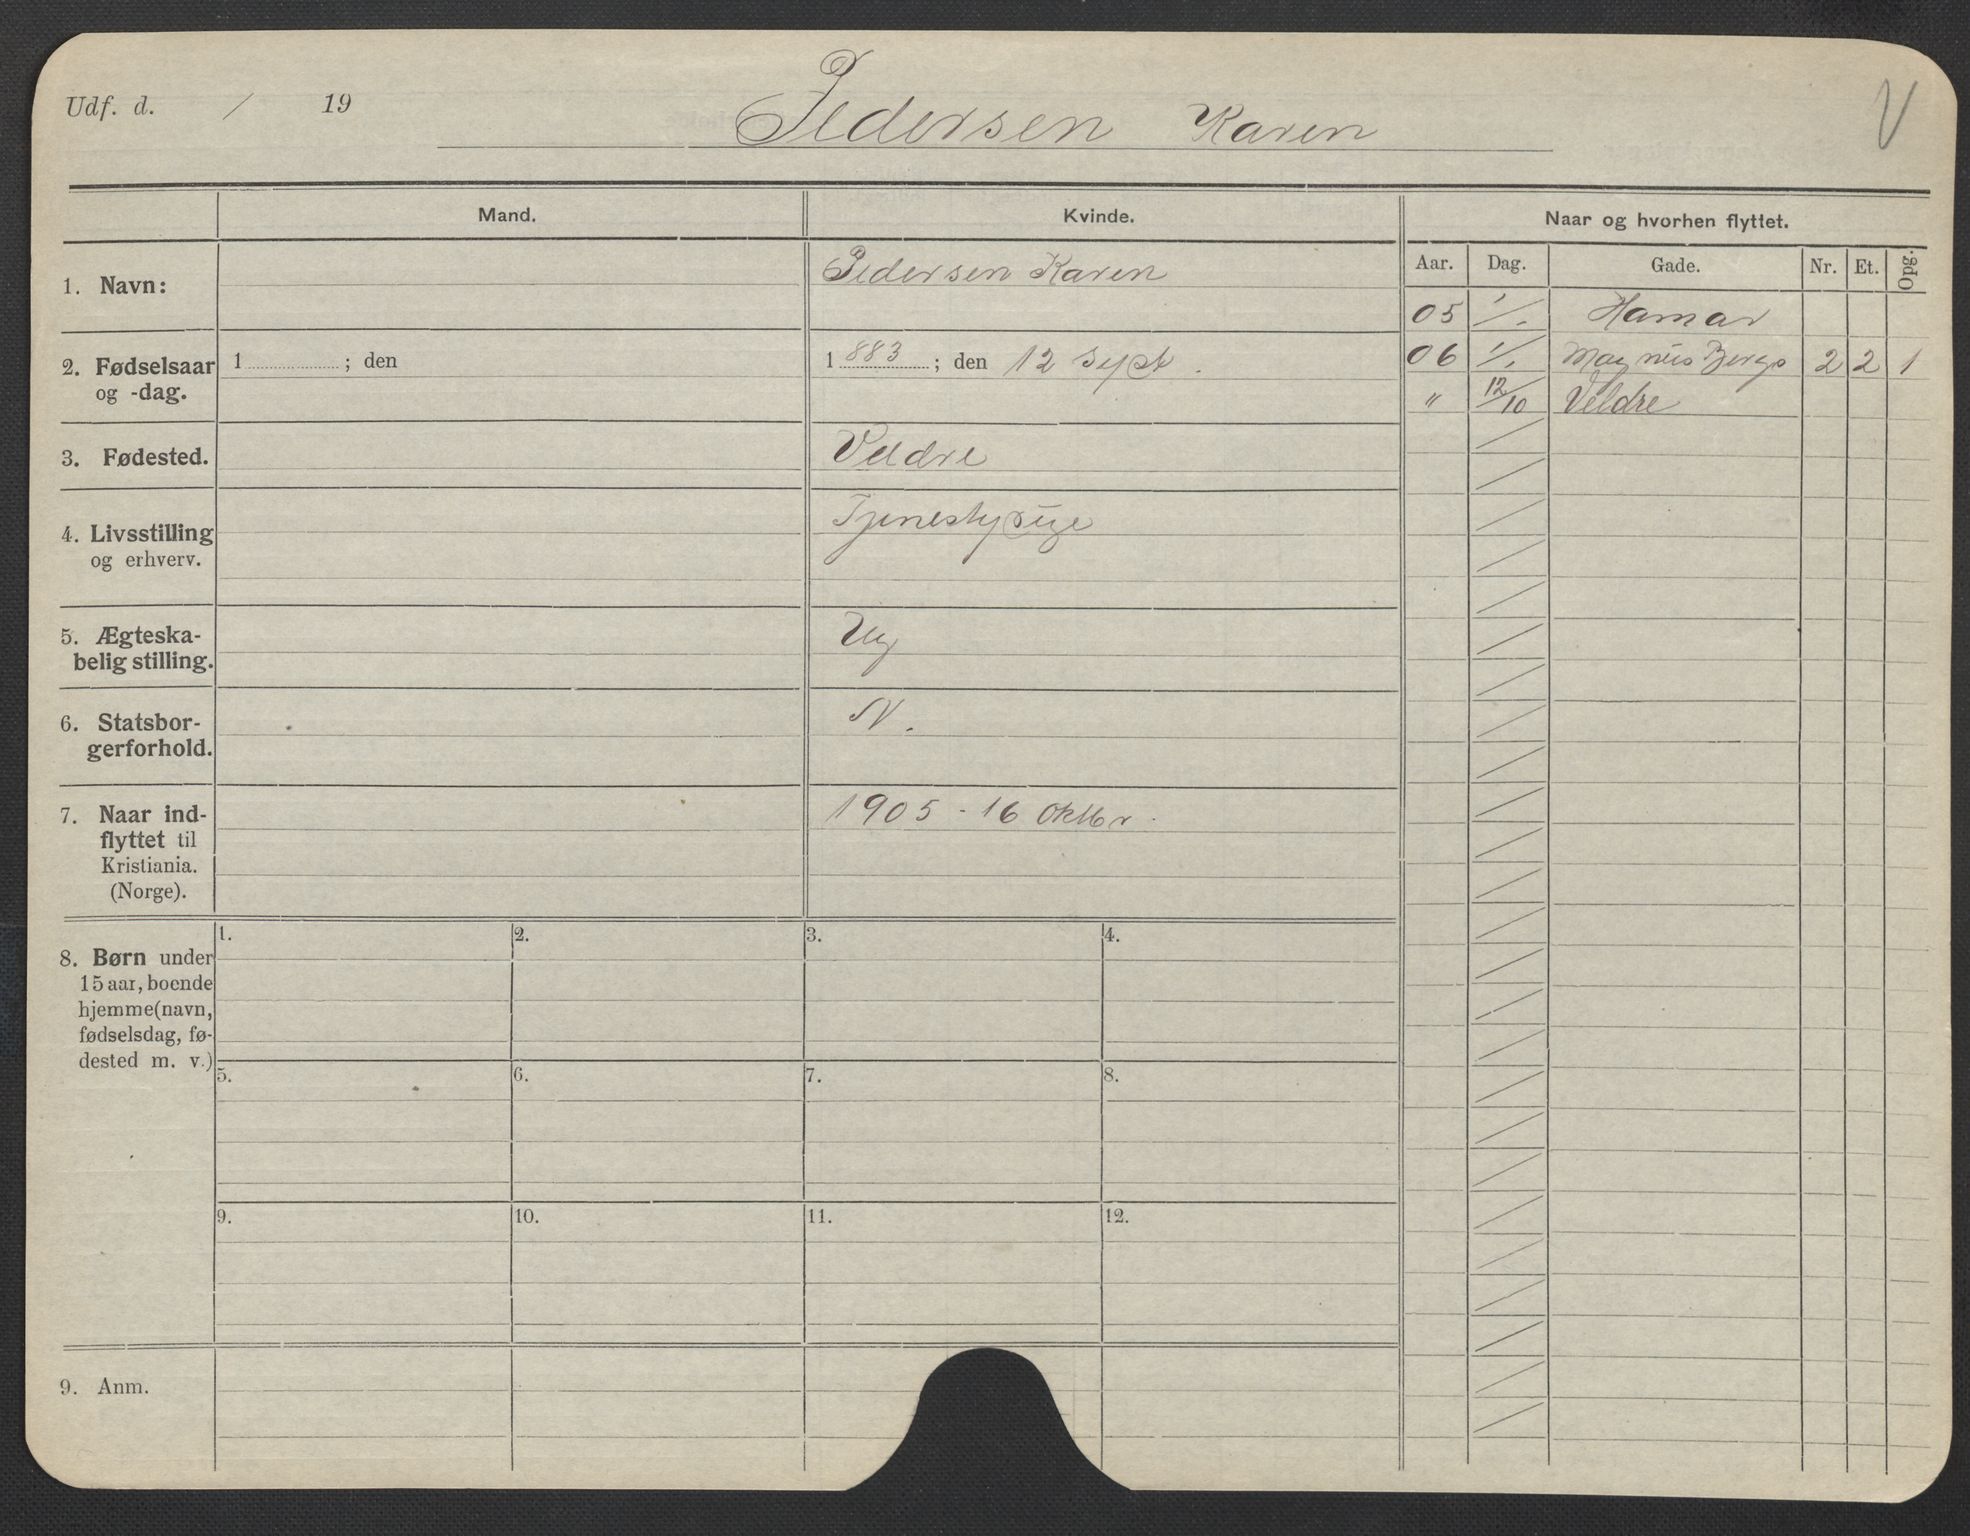 Udf. d. / 19
Pedersen Karen
V
Mand.
Kvinde.
Naar og hvorhen flyttet.
Aar. Dag. Gade. Nr. Et. Opg.
1. Navn:
Pedersen Karen
05 1/1. Hamar
2. Fødselsaar
og -dag.
1 ; den
1 883 ; den 12 Sept.
06 1/1 Magnus Bergs 2 2 1
" 12/10 Veldre
3. Fødested.
Veldre
4. Livsstilling
og erhverv.
Tjenestypige
5. Ægteska-
belig stilling.
Ug
6. Statsbor-
gerforhold.
N.
7. Naar ind-
flyttet til
Kristiania.
(Norge).
1905 - 16 Oktbr.
8. Børn under
15 aar, boende
hjemme (navn,
fødselsdag, fø-
dested m. v.)
1. 2. 3. 4.
5. 6. 7. 8.
9. 10. 11. 12.
9. Anm.